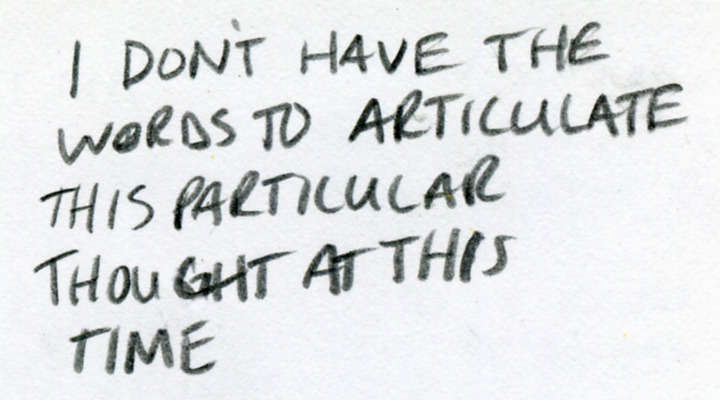 I DON'T HAVE THE
WORDS TO ARTICULATE
THIS PARTICULAR
THOUGHT AT THIS
TIME